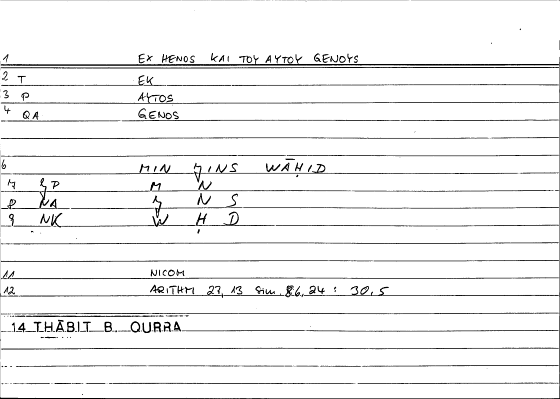 1 EX HENOS KAI TOY AYTOY GENOYS
2 T EK
3 P AYTOS
4 QA GENOS
6 MIN ǦINS WĀḤID
7 P M N
8 NA Ǧ N S
9 NK W Ḥ D
11 NICOM
12 ARITHM 27, 13 sim. 86, 24 : 30, 5
14 THĀBIT B. QURRA